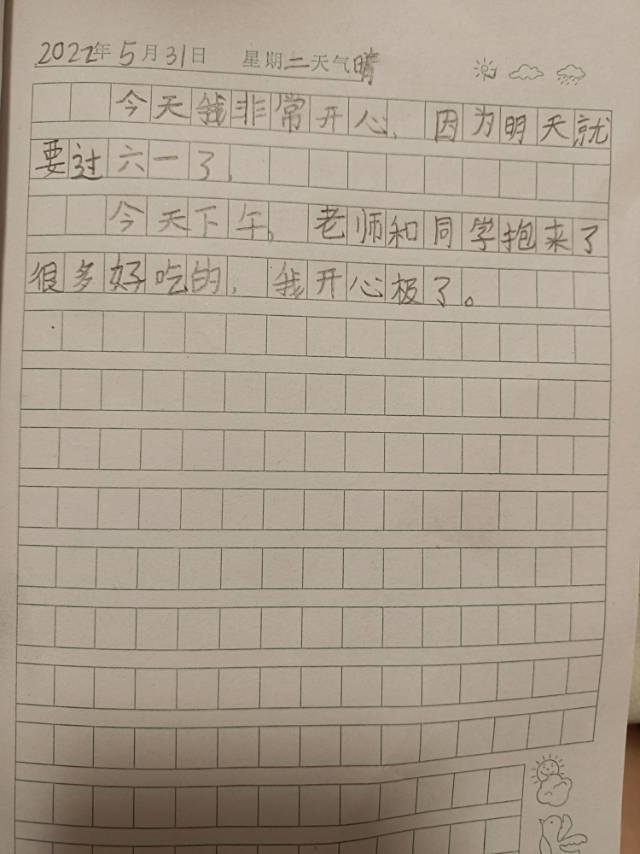 2022年5月31日 星期二天气晴
今天我非常开心、因为明天就
要过六一了、
今天下午,老师和同学抱来了
很多好吃的,我开心极了。